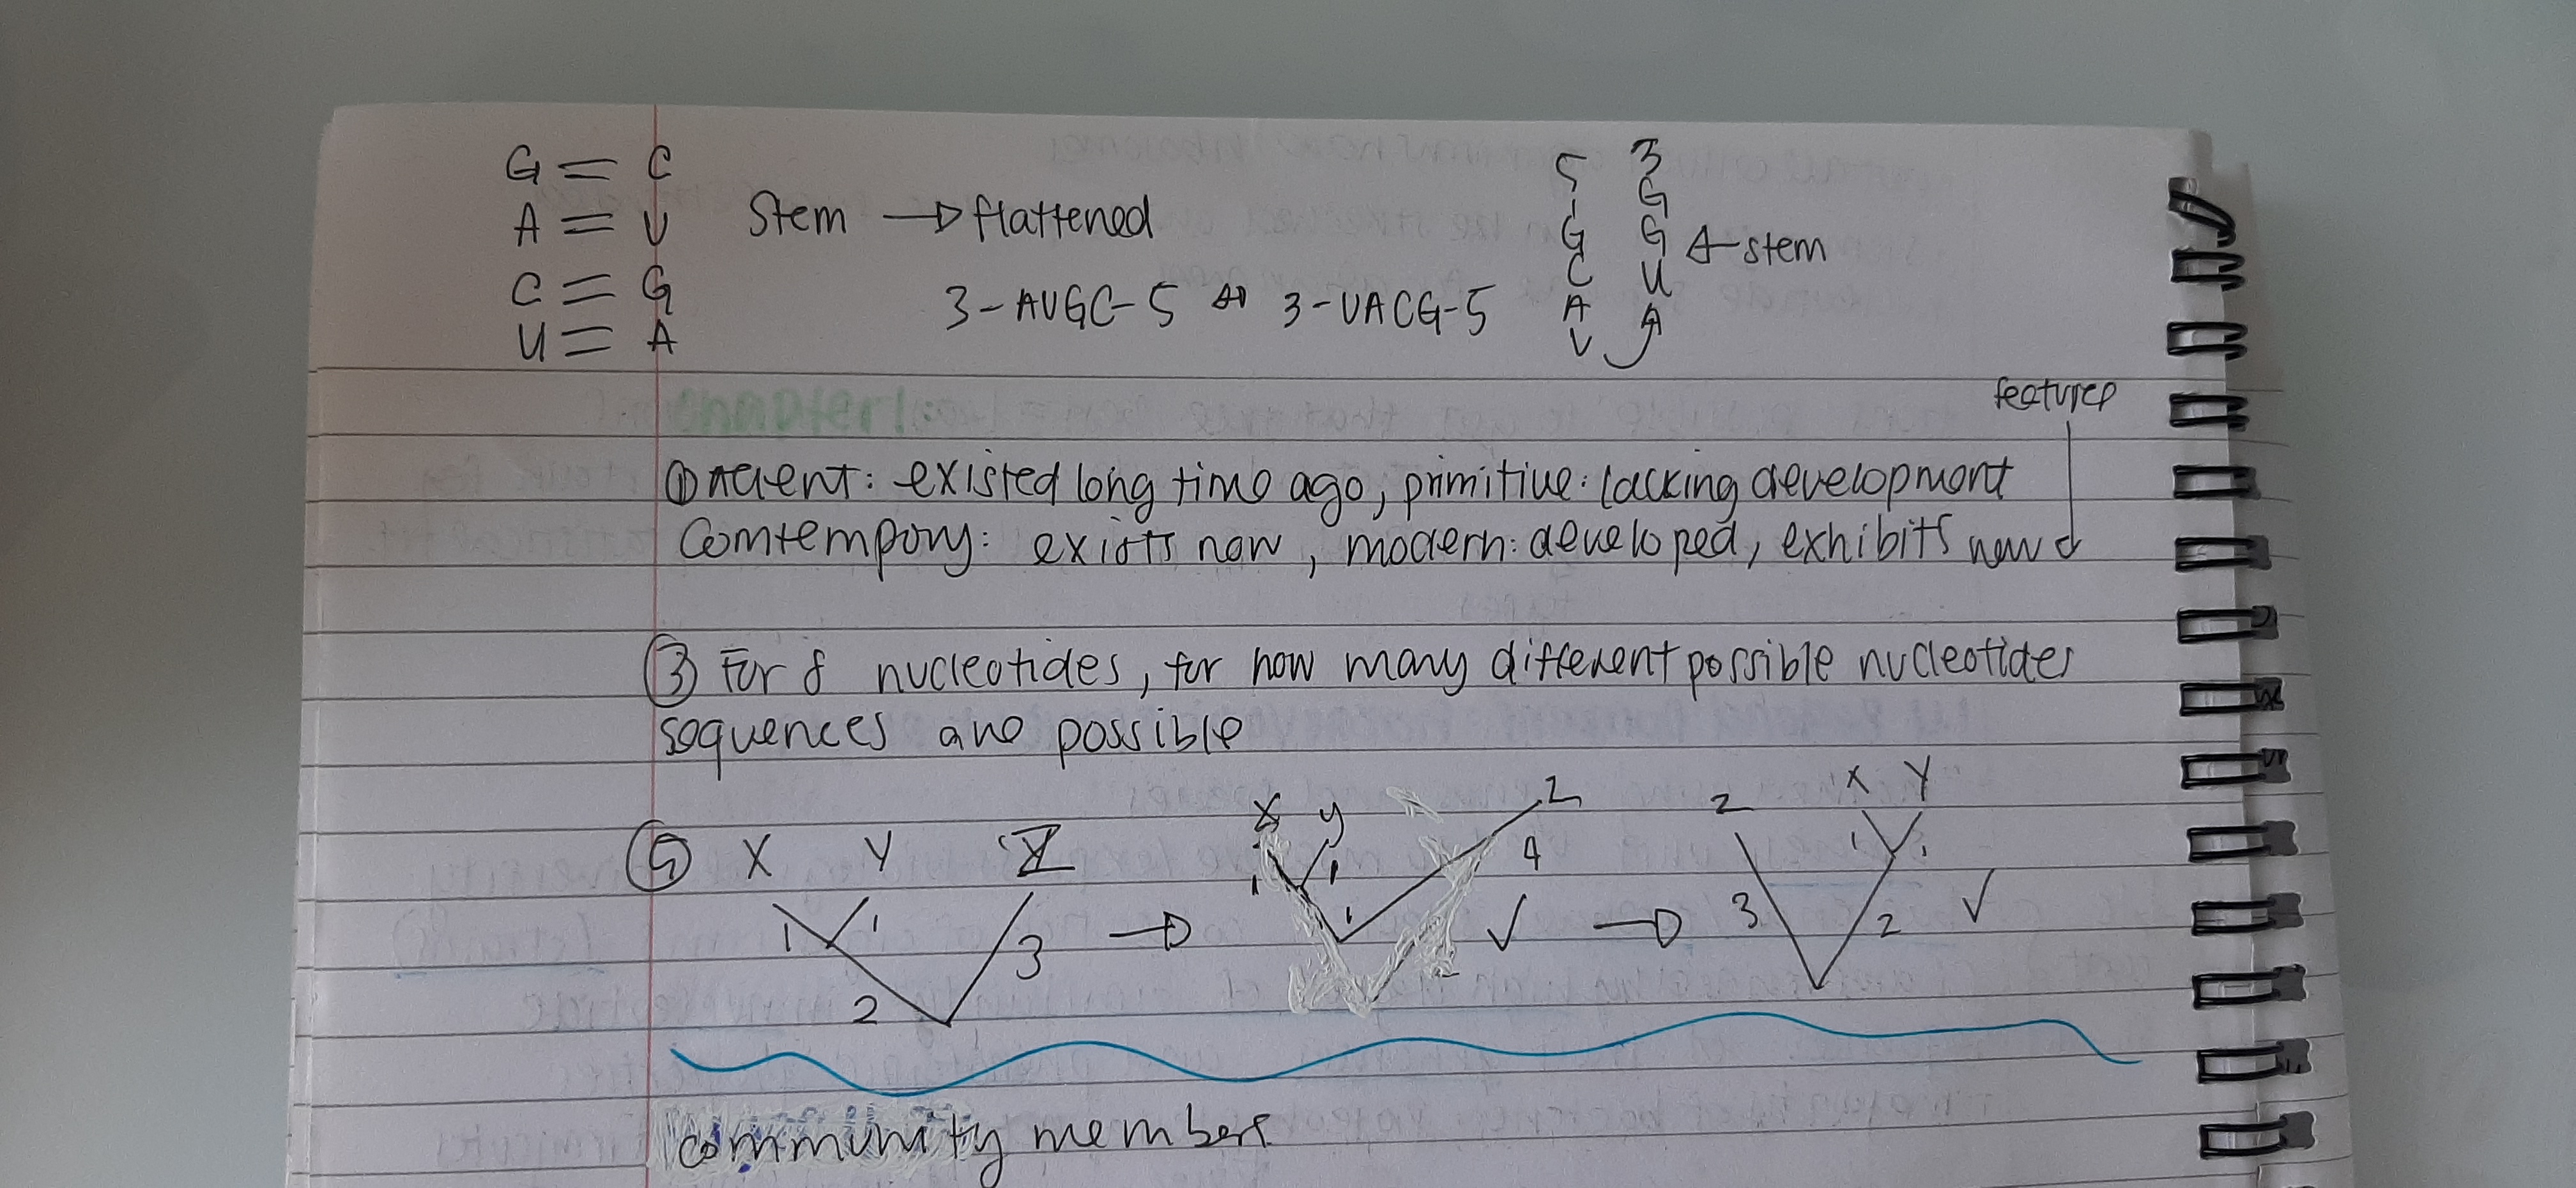 G = C
A = U
C = G
U = A
Stem → flattened
3-AUGC-5 ↔ 3-UACG-5
5 3
G
G G ← stem
C U
A A
U
features
① Ancient: existed long time ago, primitive: lacking development
Comtempory: exists now, modern: developed, exhibits new
③ For 8 nucleotides, for how many different possible nucleotides
sequences are possible
X Y Z
1 1 3
2
→
X y Z
1 1 4
1
✓
→
Z X Y
1 1
3 2
✓
community members